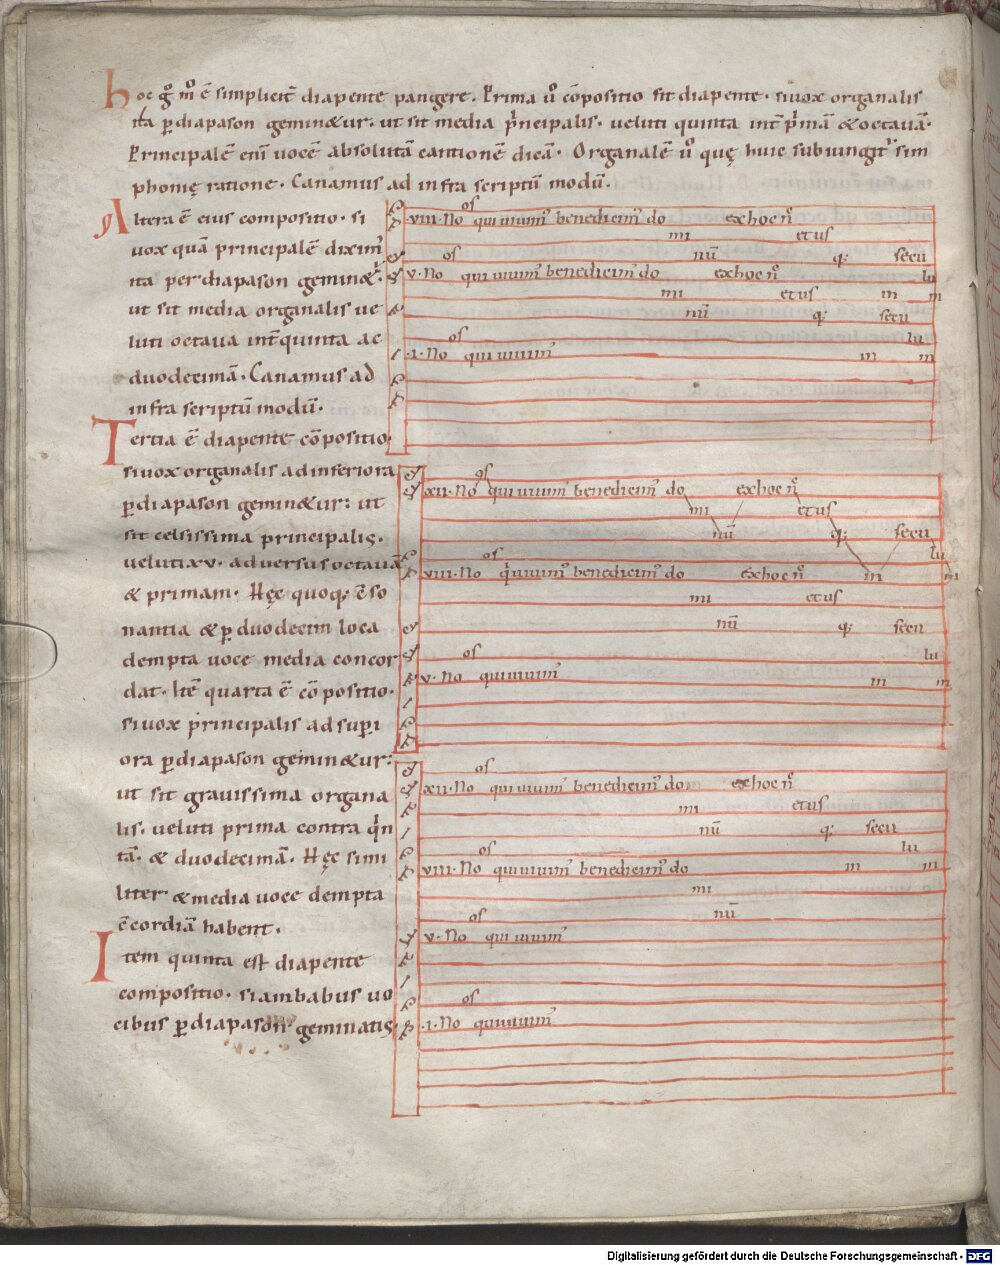 hoc gͦ mͦ ē simpliciṫ diapente pangere. Prima ů cōpositio sit diapente. si uox organalis
ita p̱ diapason geminetur. ut sit media principalis. ueluti quinta int̄ primā & octauā.
Principalē eni uocē absolutā cantionē dicā. Organalē ů quę huic subiungit᷑ sim
phonię ratione. Canamus ad infra scriptū modū.
Altera ē eius compositio. si
uox quā principalē diximꝰ
ita per diapason geminet᷑.
ut sit media organalis ue
luti octaua int̄ quinta ac
duodecimā. Canamus ad
infra scriptū modū.
Tertia ē diapente cōpositio
si uox organalis ad inferiora
p̱ diapason geminetur: ut
sit celsissima principalis.
ueluti xv. aduersus octauā
& primam. Hęc quoq; c̄so
nantia & p̱ duodecim loca
dempta uoce media concor
dat. Itē quarta ē cōpositio.
si uox principalis ad supi̱
ora p̱ diapason geminetur:
ut sit grauissima organa
lis. ueluti prima contra q̇n
tā. & duodecimā. Hęc simi
liter & media uoce dempta
c̄cordiā habent.
Item quinta est diapente
compositio. si ambabus uo
cibus p̱ diapason geminatis.
os
viii. No qui uiuimꝰ benedicimꝰ do exhoc nͦ
mi etus
os nū q: secu
v. No qui uiuimꝰ benedicimꝰ do exhoc nͦ lu
mi etus in m
nū q: secu
os lu
.i. No qui uiuimꝰ in m
os
xii. No qui uiuimꝰ benedicimꝰ do exhoc nͦ
mi etus
nū q: secu
os lu
viii. No q̇ uiuimꝰ benedicimꝰ do exhoc nͦ in m
mi etus
nū q: secu
os lu
v. No qui uiuimꝰ in m
os
xii. No qui uiuimꝰ benedicimꝰ do exhoc nͦ
mi etus
nū q: secu
os lu
viii. No qui uiuimꝰ benedicimꝰ do in m
mi
os nū
v. No qui uiuimꝰ
os
.i. No qui uiuimꝰ
Digitalisierung gefördert durch die Deutsche Forschungsgemeinschaft - DFG